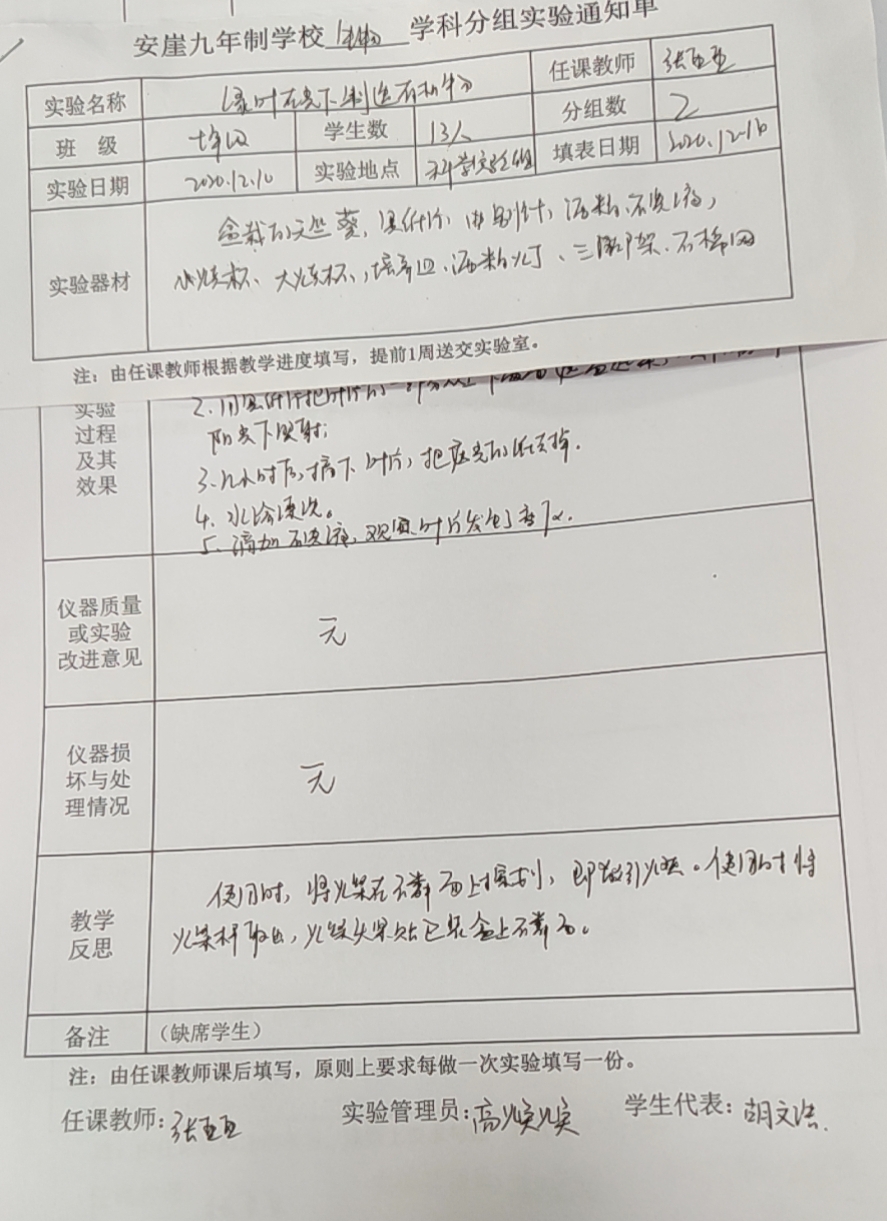 安崖九年制学校 生物 学科分组实验通知单
实验名称 绿叶在光下制造有机物 任课教师 张
班 级 七年级 学生数 13人 分组数 2
实验日期 2020.12.10 实验地点 科学实验 填表日期 2020.12.10
实验器材 盆栽的天竺葵,黑纸片,曲别针,酒精,碘液,
小烧杯、大烧杯,培养皿,酒精灯、三脚架、石棉网
注:由任课教师根据教学进度填写,提前1周送交实验室。
实验
过程
及其
效果
2.用黑纸片把叶片的一部分从上下
阳光下照射;
3.几小时后,摘下叶片,把遮光的纸去掉。
4.水
5.滴加碘液,观察叶片发生了
仪器质量
或实验
改进意见
无
仪器损
坏与处
理情况
无
教学
反思
使用时,将火柴在 面上擦划,即 引火燃。使用时将
火柴杆取出,火柴头 盒上 面。
备注 (缺席学生)
注:由任课教师课后填写,原则上要求每做一次实验填写一份。
任课教师:张 实验管理员:高焕焕 学生代表:胡文浩.